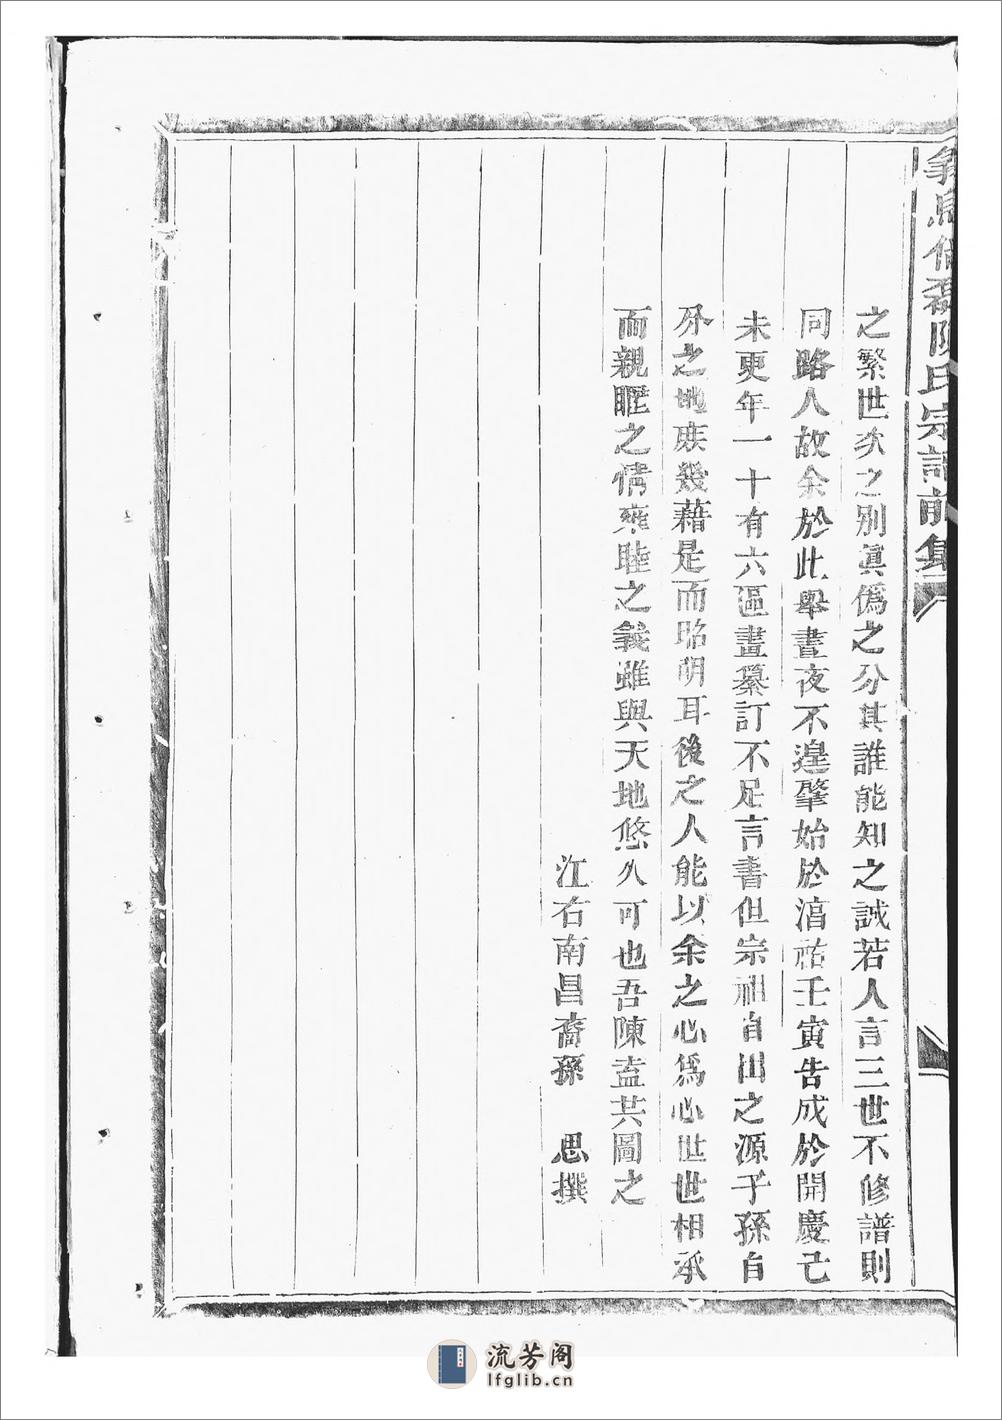 陳氏宗譜前集
之繁世次之別眞僞之分其誰能知之誠若人言三世不修譜則
同路人故余於此舉晝夜不遑肇始於淯祐壬寅告成於開慶己
未更年一十有六區畫纂訂不足言書但宗祖自出之源子孫自
分之地庶幾藉是而昭明耳後之人能以余之心爲心世世相承
而親睚之情雍睦之義雖與天地悠久可也吾陳盍共圖之
江右南昌裔孫 思撰
流芳阁
lfglib.cn